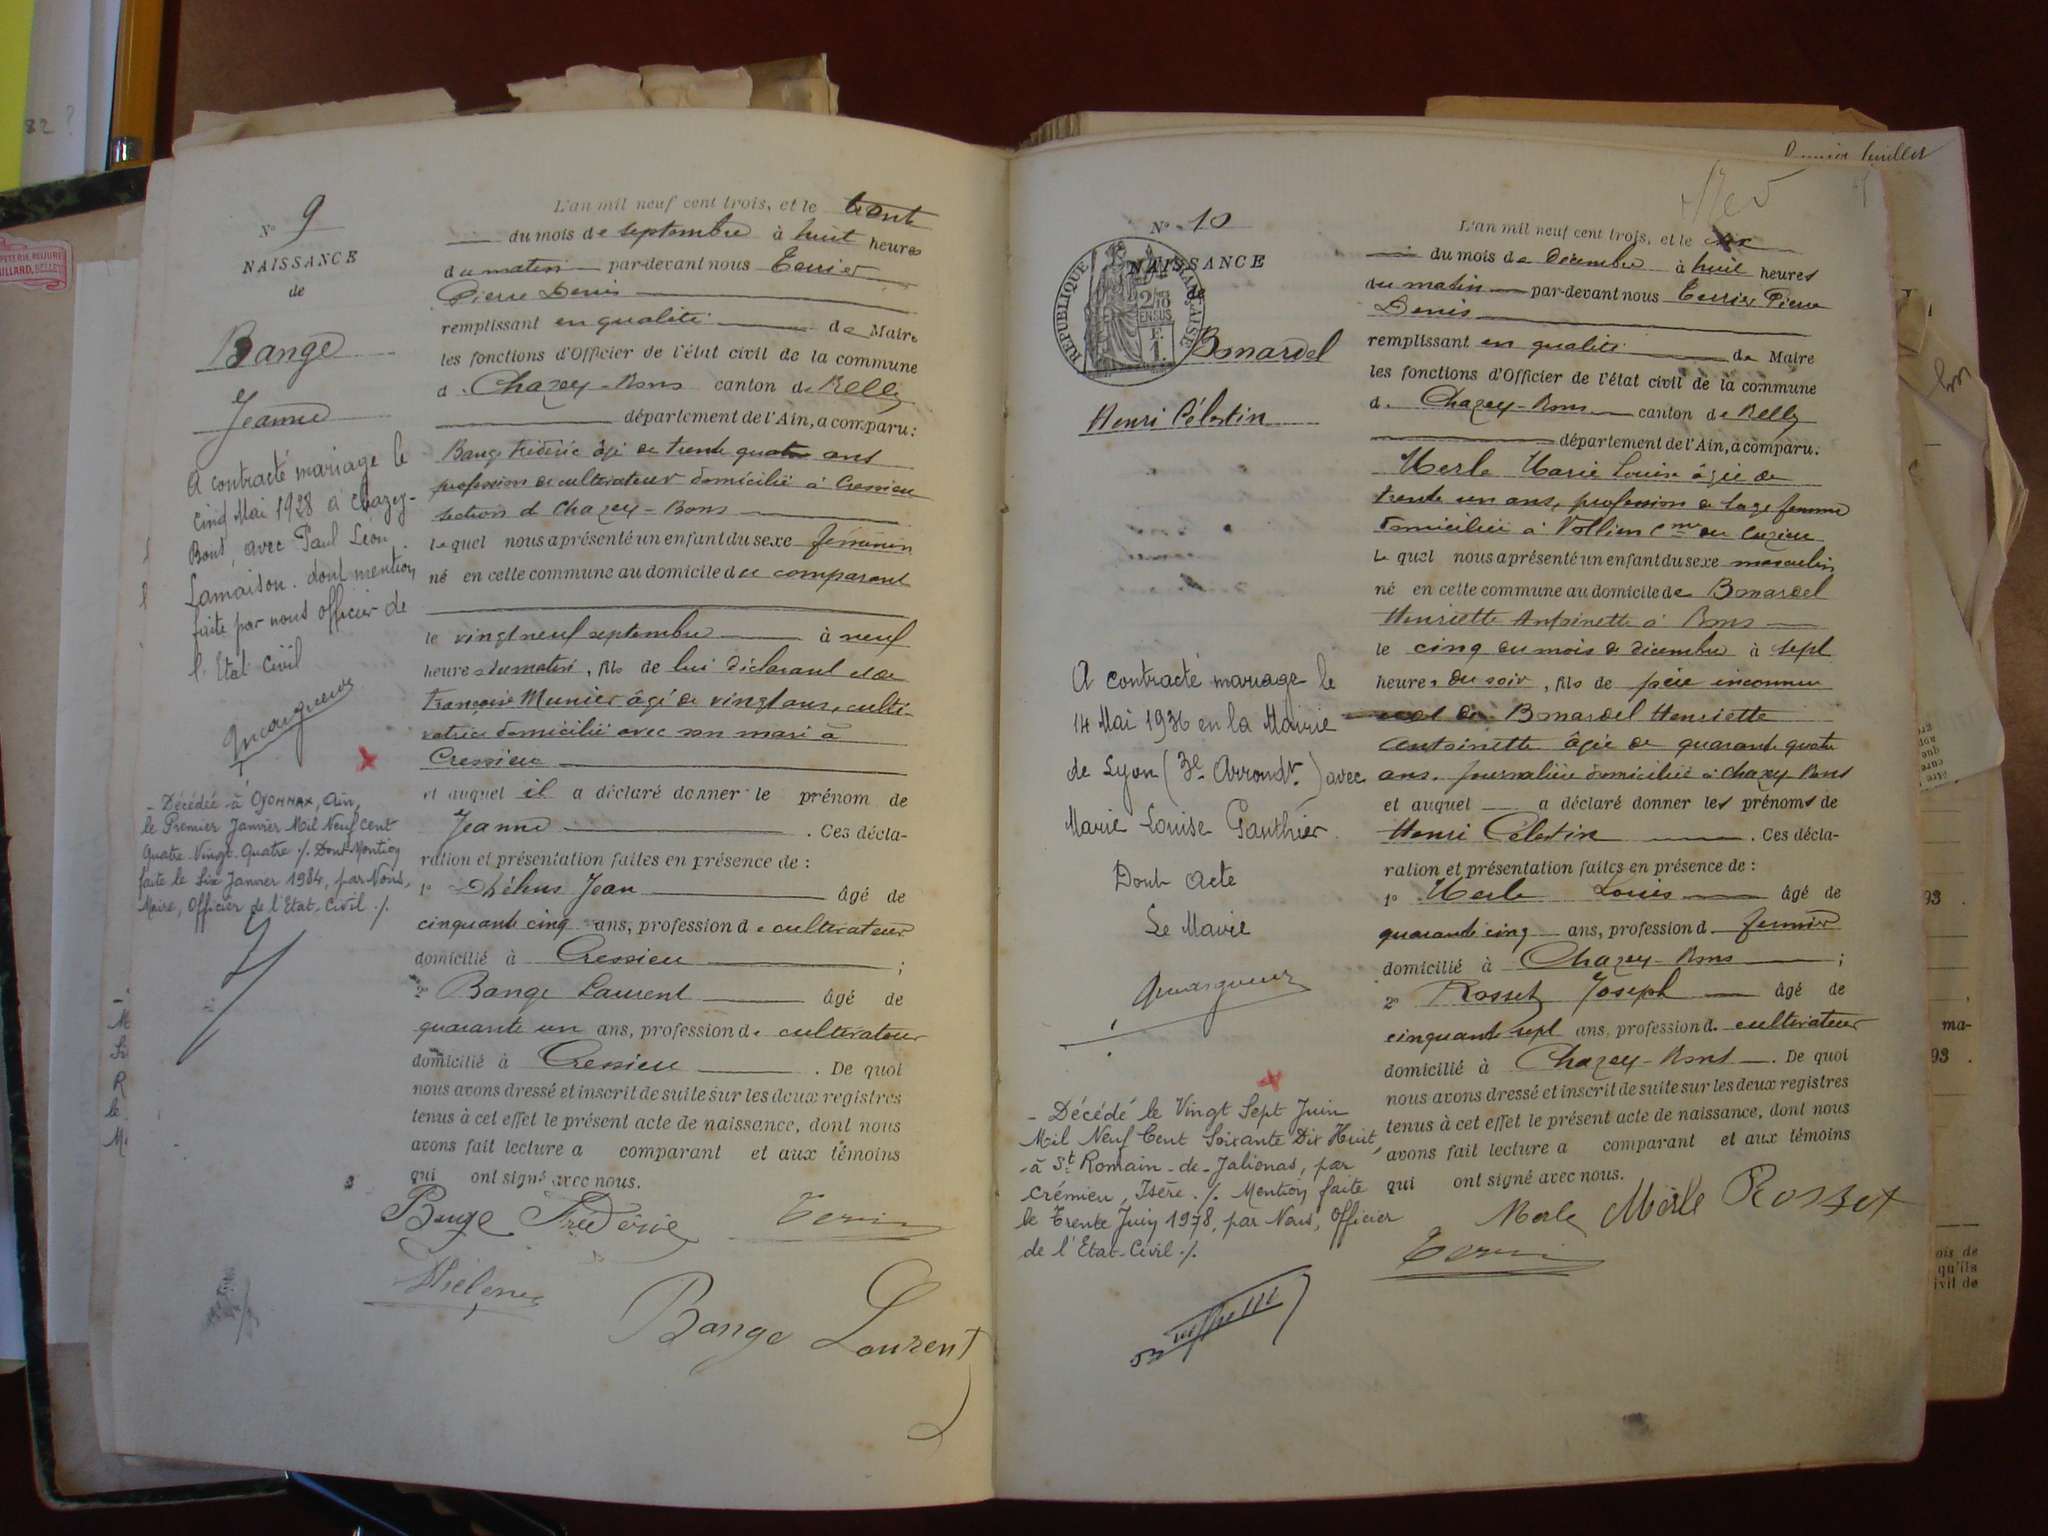 82 ?
N° 9
NAISSANCE
de
Bange
Jeanne
A contracté mariage le
cinq Mai 1928 à Chazey-
Bons, avec Paul Léon
Lamaison. dont mention
faite par nous officier de
l'Etat Civil
- Décédée à OYONNAX, Ain,
le Premier Janvier Mil Neuf Cent
Quatre-Vingt-Quatre ./. Dont Mention
faite le Six Janvier 1984, par Nous,
Maire, Officier de l'Etat-Civil ./.
L'an mil neuf cent trois, et le trente
du mois de septembre à huit heures
du matin par-devant nous Terrier
Pierre Denis
remplissant en qualité de Maire
les fonctions d'Officier de l'état civil de la commune
d. Chazey-Bons canton de Belley
département de l'Ain, a comparu:
Bange Frédéric âgé de trente quatre ans
profession de cultivateur domicilié à Cressieu
section d Chazey-Bons
lequel nous a présenté un enfant du sexe féminin
né en cette commune au domicile du comparant
le vingt neuf septembre à neuf
heures du matin, fils de lui déclarant et de
Françoise Munier âgé de vingt ans, culti-
vatrice domicilié avec son mari à
Cressieu
et auquel il a déclaré donner le prénom de
Jeanne . Ces décla-
ration et présentation faites en présence de :
1° Jean âgé de
cinquante cinq ans, profession de cultivateur
domicilié à Cressieu ;
2° Bange Laurent âgé de
quarante un ans, profession de cultivateur
domicilié à Cressieu . De quoi
nous avons dressé et inscrit de suite sur les deux registres
tenus à cet effet le présent acte de naissance, dont nous
avons fait lecture a comparant et aux témoins
qui ont signé avec nous.
Bange Frédéric
Bange Laurent
N° 10
NAISSANCE
de
REPUBLIQUE FRANÇAISE
2/10 EN SUS
F. 1.
Bonardel
Henri Célestin
A contracté mariage le
14 Mai 1936 en la Mairie
de Lyon (3e Arrondt) avec
Marie Louise Gauthier
Dont Acte
Le Maire
- Décédé le Vingt Sept Juin
Mil Neuf Cent Soixante Dix Huit,
à St Romain-de-Jalionas, par
Crémieu, Isère ./. Mention faite
le Trente Juin 1978, par Nous, Officier
de l'Etat-Civil ./.
L'an mil neuf cent trois, et le six
du mois de décembre à huit heures
du matin par-devant nous Terrier Pierre
Denis
remplissant en qualité de Maire
les fonctions d'Officier de l'état civil de la commune
d. Chazey-Bons canton de Belley
département de l'Ain, a comparu:
Merle Marie Louise âgée de
trente un ans, profession de sage femme
domiciliée à Vollien cne de Cuzieu
Lequel nous a présenté un enfant du sexe masculin
né en cette commune au domicile de Bonardel
Henriette Antoinette à Bons
le cinq du mois de décembre à sept
heures du soir, fils de père inconnu
et de Bonardel Henriette
Antoinette âgée de quarante quatre
ans. journalière domiciliée à Chazey Bons
et auquel a déclaré donner les prénoms de
Henri Célestin . Ces décla-
ration et présentation faites en présence de :
1° Merle Louis âgé de
quarante cinq ans, profession d. fermier
domicilié à Chazey-Bons ;
2° Rosset Joseph âgé de
cinquante sept ans, profession d. cultivateur
domicilié à Chazey-Bons . De quoi
nous avons dressé et inscrit de suite sur les deux registres
tenus à cet effet le présent acte de naissance, dont nous
avons fait lecture a comparant et aux témoins
qui ont signé avec nous.
Merle Merle Rosset
93 .
ma-
93 .
ois de
qu'ils
ivil de